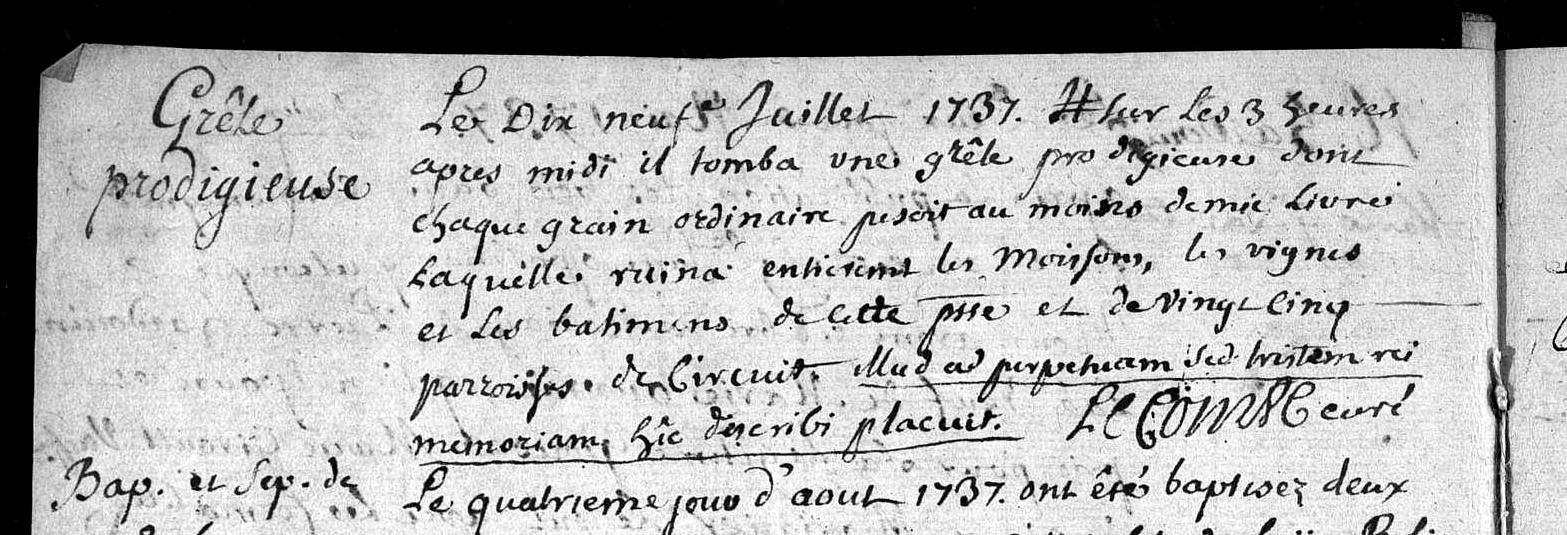 Grêle
prodigieuse
Le Dix neufe Juillet 1737. # sur les 3 heures
apres midi il tomba une grêle prodigieuse dont
chaque grain ordinaire pesoit au moins demie Livre
Laquelle ruina entieremt les Moissons, les vignes
et Les batimens de cette psse et de vingt Cinq
parroisses de Circuit. illud ad perpetuam sed tristem rei
memoriam hîc describi placuit. LE COMTE curé
Bap. et Sep. de
Le quatrieme jour d'aout 1737. ont êté baptisez deux